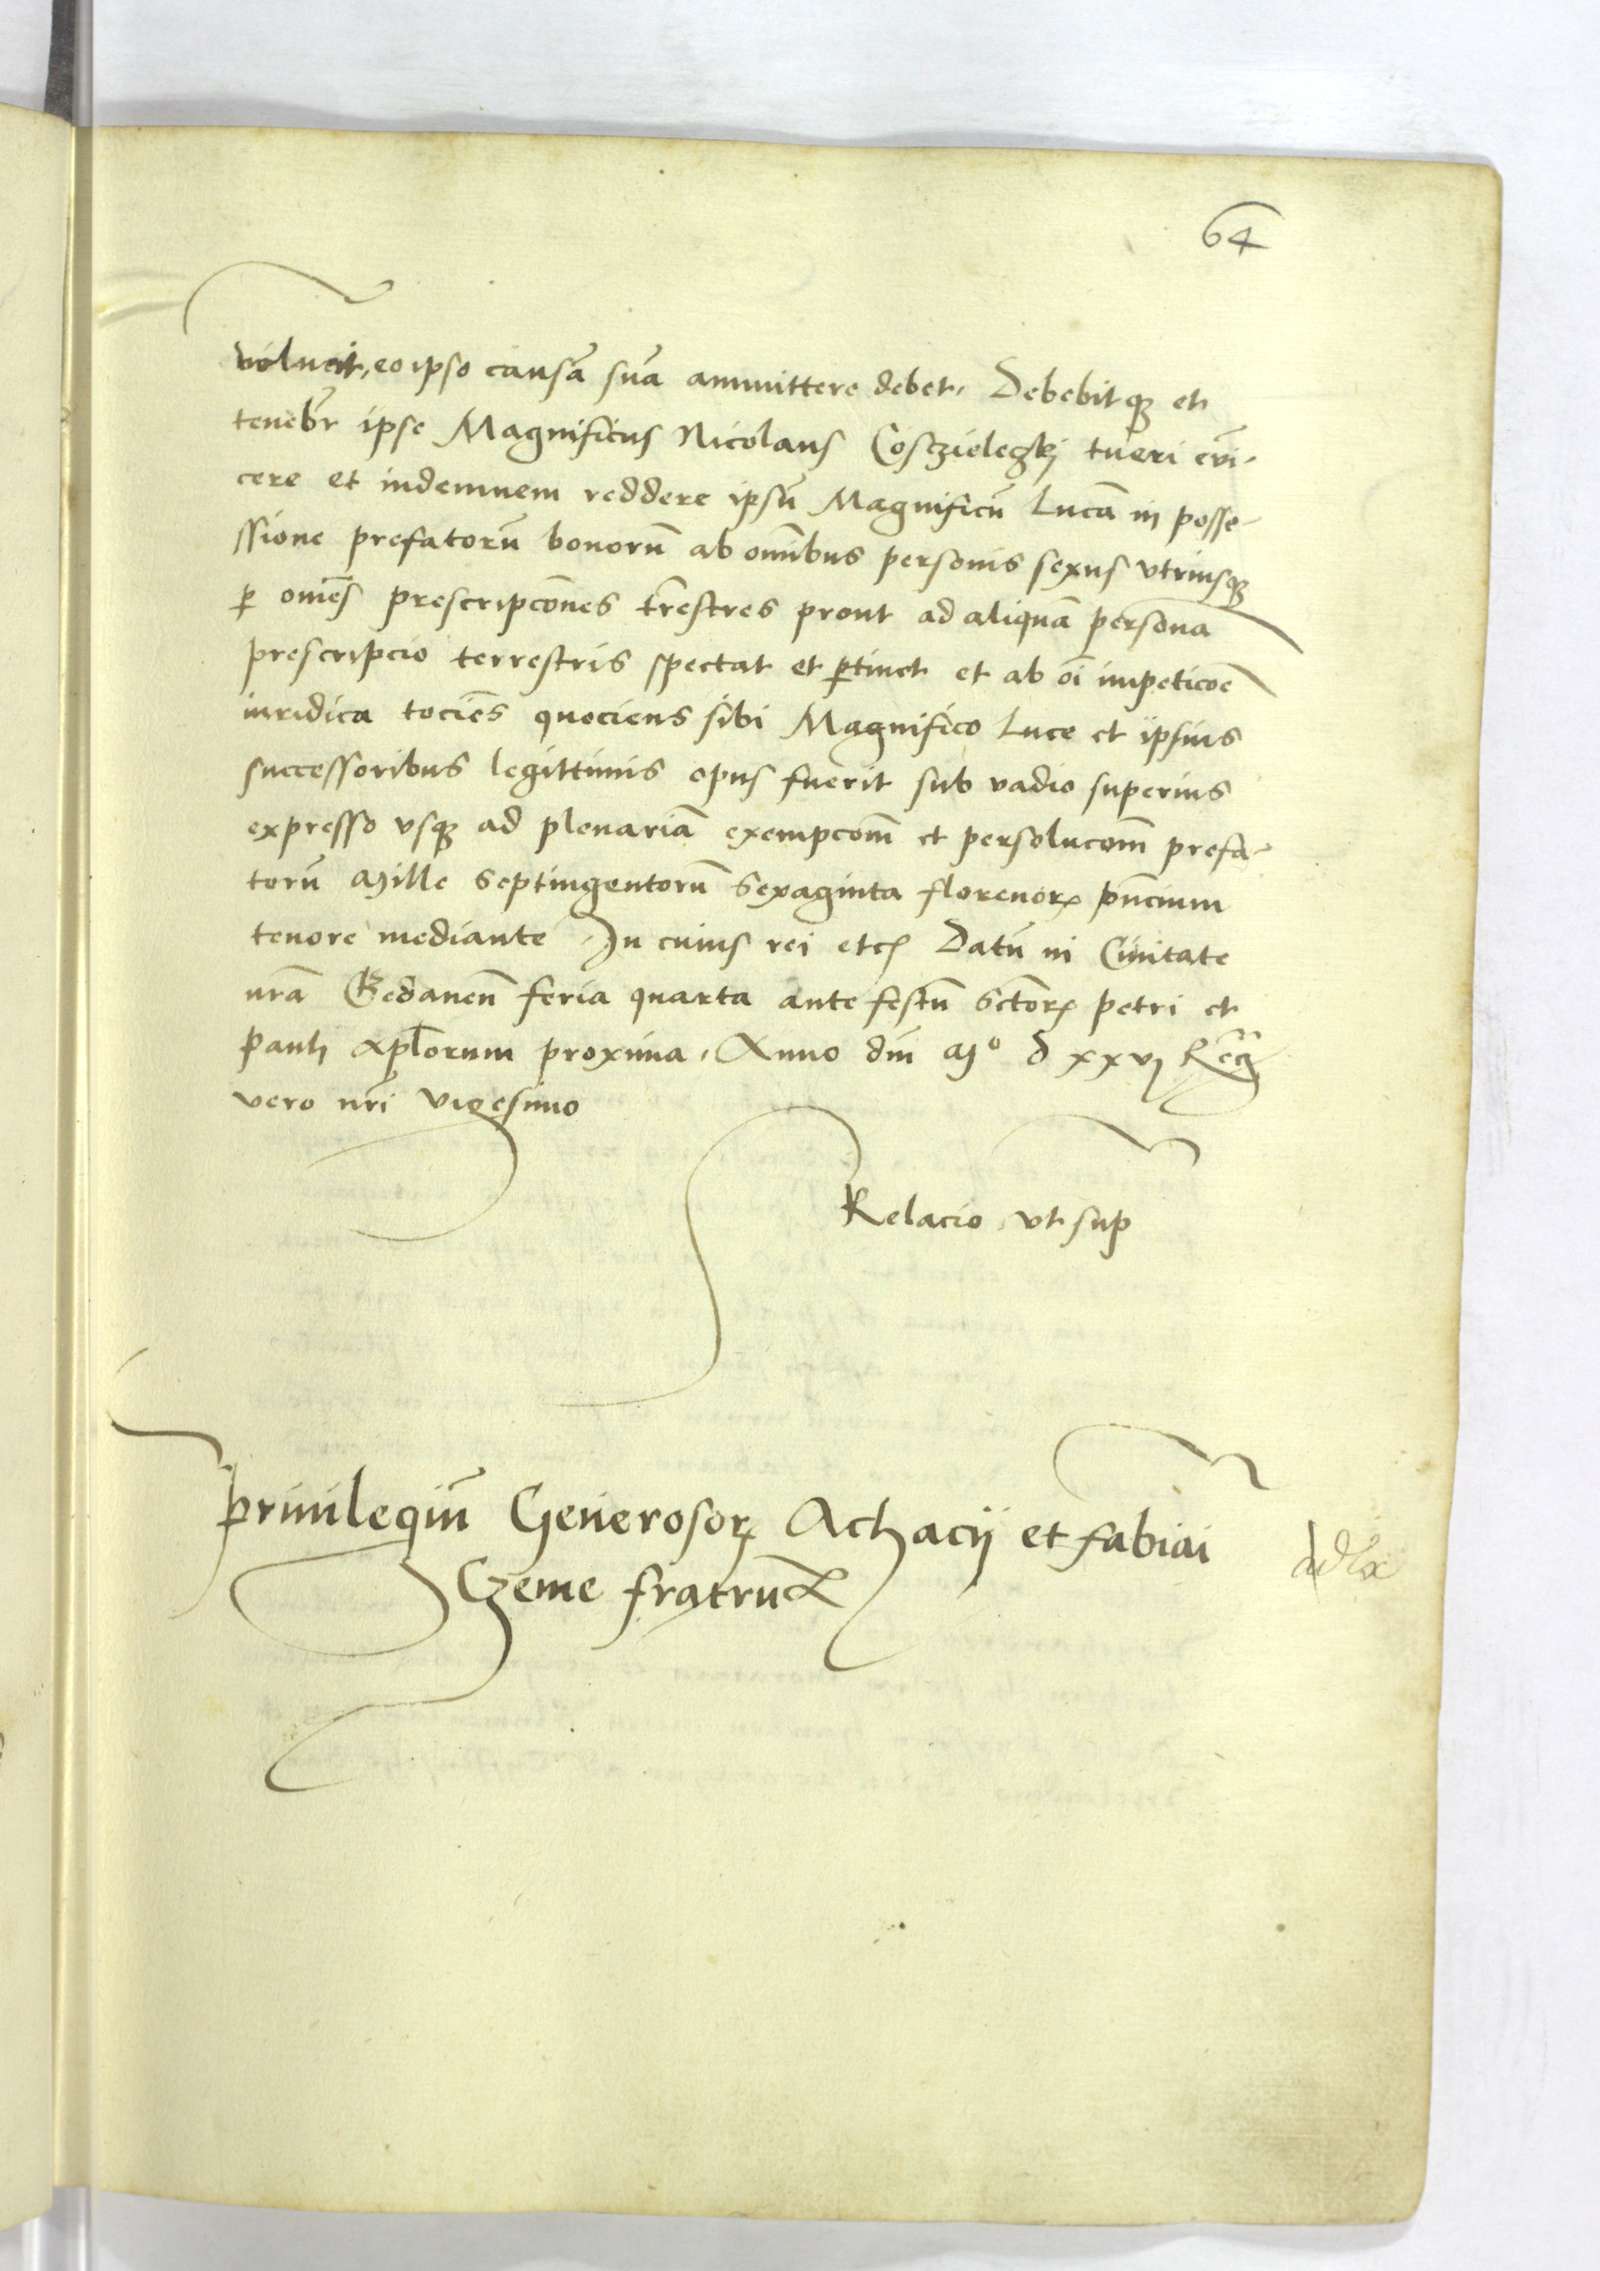 64
voluerit, eo ipso causã suã ammittere debet. Debebitq₃ et
tenebr̃ ipse Magnificus Nicolaus Cosczielegkj tueri evĩ-
cere et indemnem reddere ipsũ Magnificũ Lucã in posse-
ssione prefatorũ bonorũ ab om̃ibus personis sexus vtriusq₃
ꝑ om̃es prescripcõnes tr̃restres prout ad aliquã persona
prescripcio terrestris spectat et ꝑtinet et ab oĩ impeticõe
iuridica tociẽs quociens sibi Magnifico Luce et ipsius
successoribus legittimis opus fuerit sub vadio superius
expresso vsq₃ ad plenariã exempcom̃ et persolucom̃ prefa-
torũ Mille septingentorũ sexaginta florenorꝝ pñcium
tenore mediante In cuius rei etcꝫ Datũ in Ciuitate
nrã Gedaneñ feria quarta ante festũ sctõrꝝ petri et
pauli apl̃orum proxima, Anno dñi Mº d xxvj
vero nrĩ vigesimo
Relacio vt sup
priuilegiũ Generosorꝝ Achacij et fabiãi
Czeme fratrum